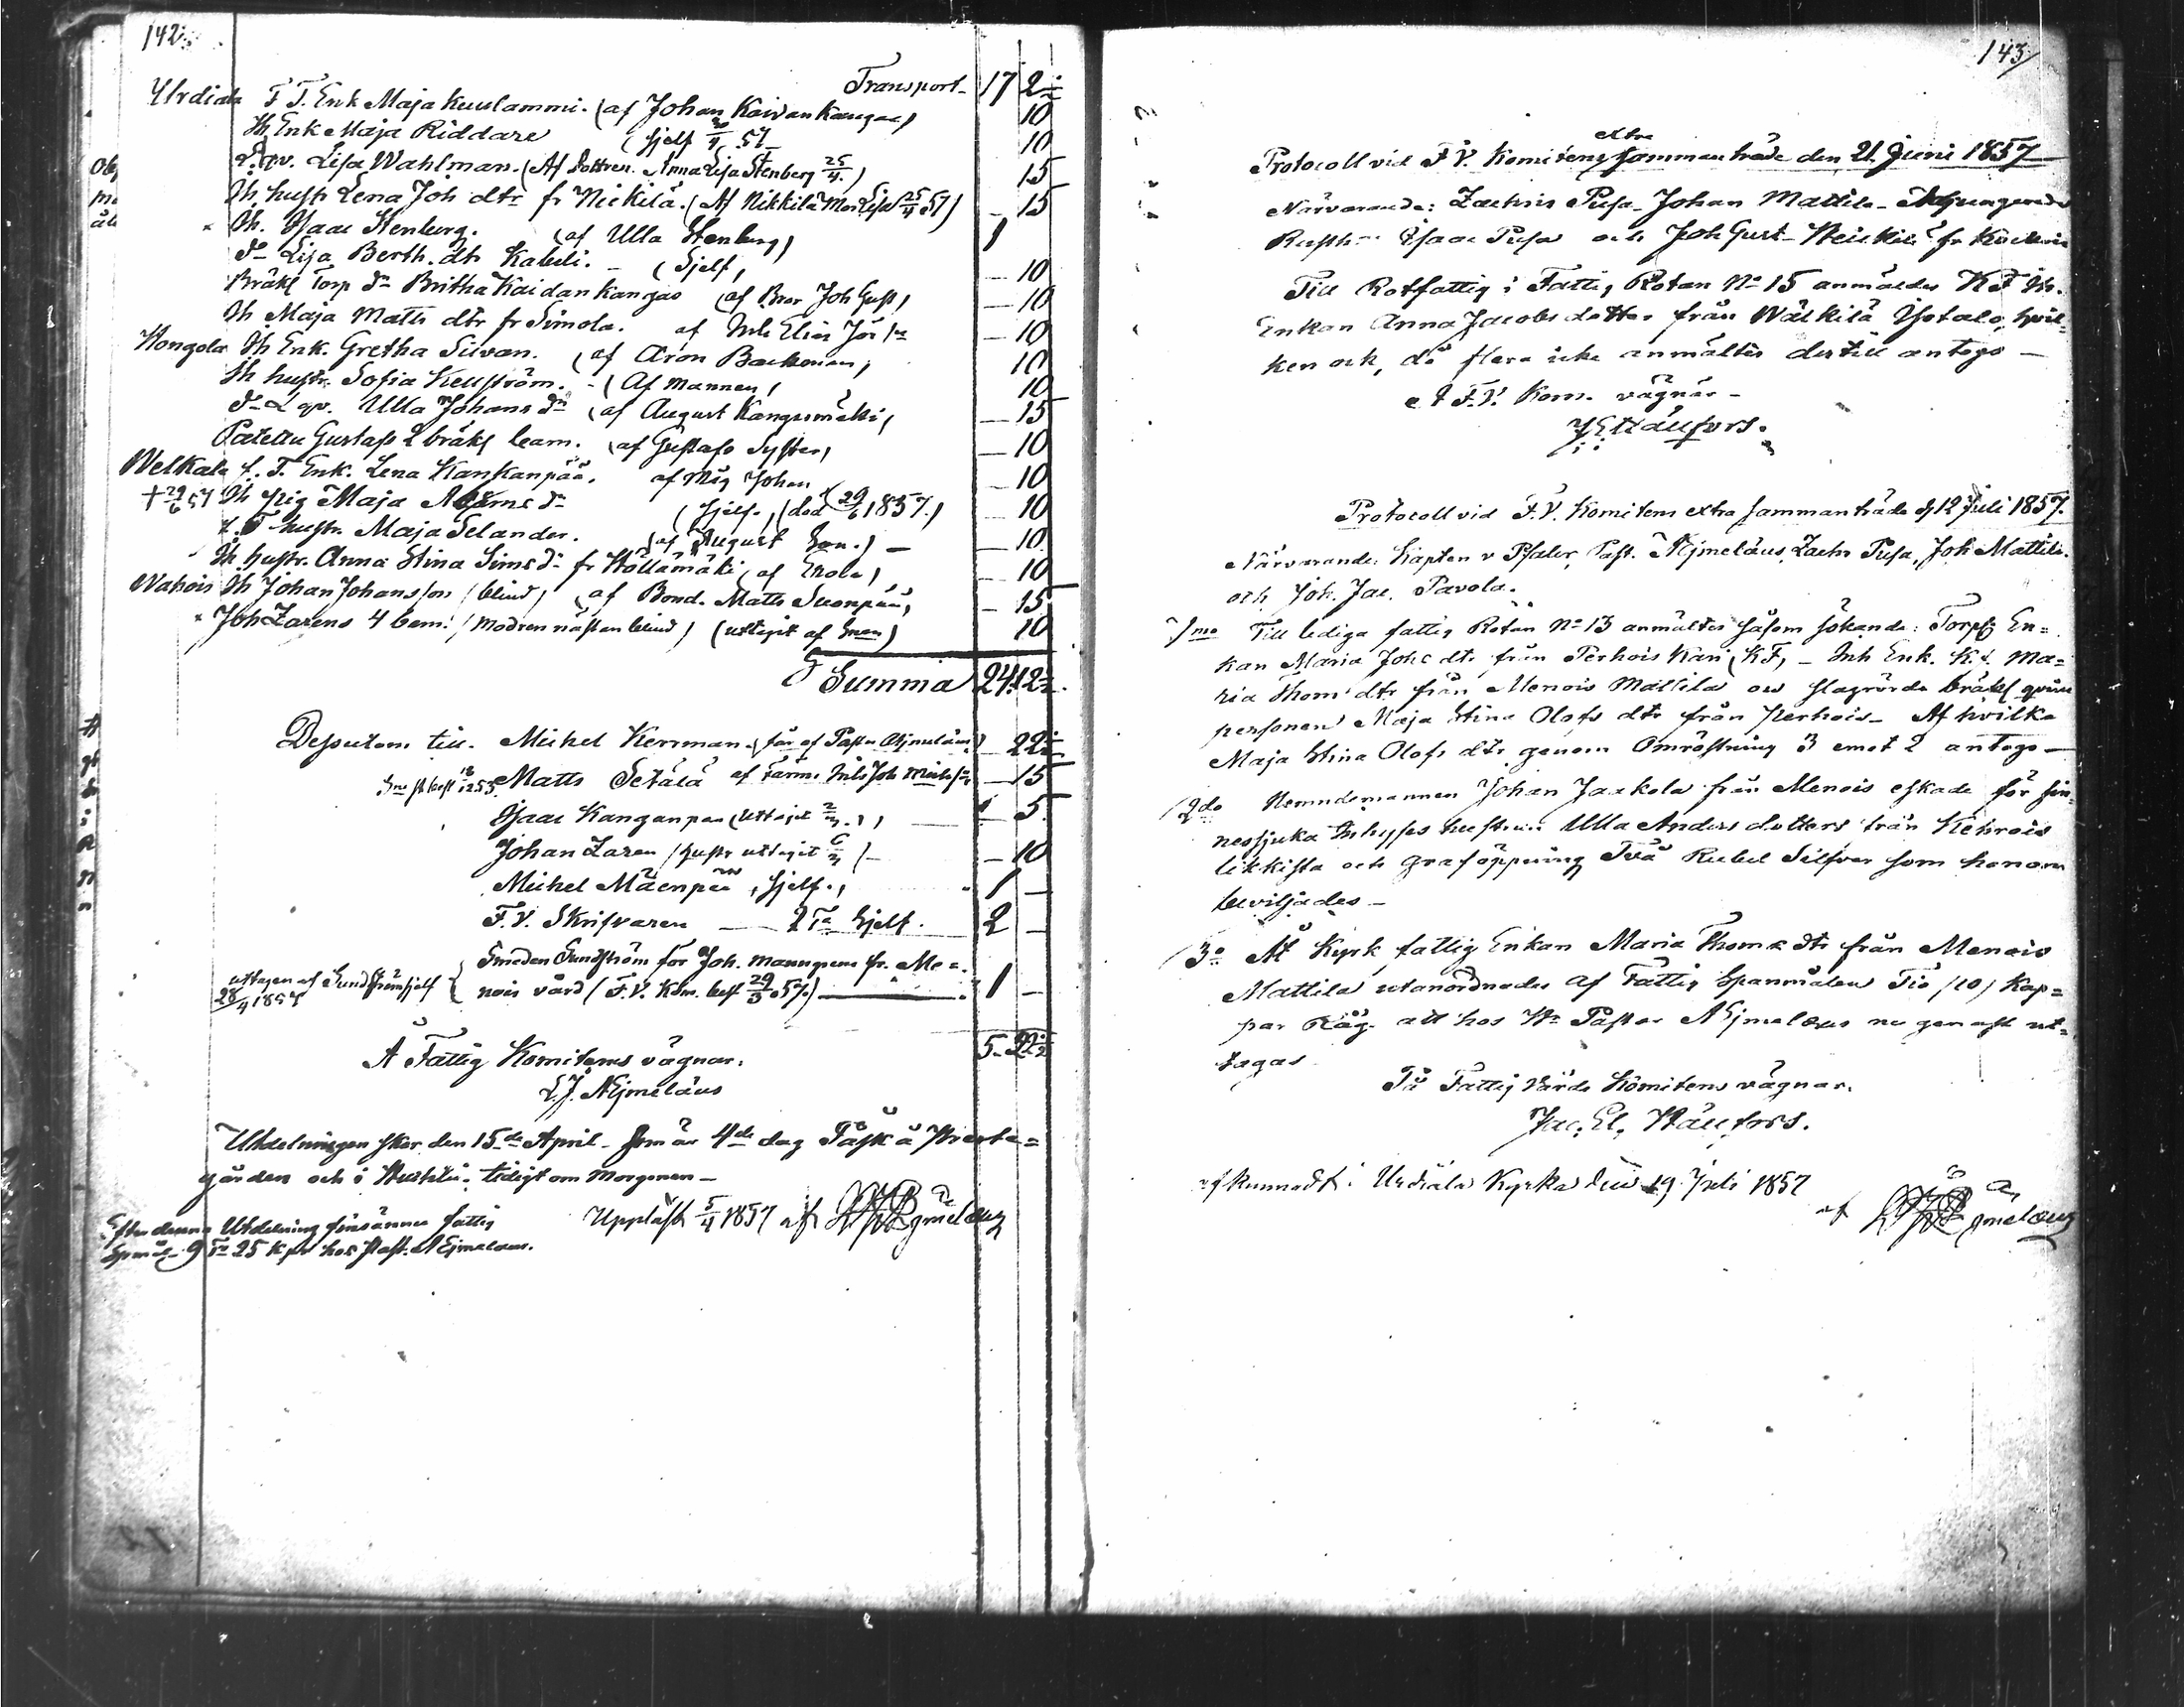 142.
Transport 17 2½
Urdiala F. T. Enk Maja Kuuslammi. (af Johan Kaivankangas) 10
Ih Enk Maja Riddare (sjelf 57 10
L. qv. Lisa Wahlman. (Af Dottren Anna Lisa Stenberg 25/4.) 15
Ih hustr Lena Joh dtr fr Nickilä. (Af Nikkilä Mor Lisa 25/4 57) 15
Ih. Isaac Stenberg. (af Ulla Stenberg) 1
dn Lisa Berth. dtr Kabeli. (Sjelf) 10
Bräkl Torp dn Britha Kaidankangas (af Bror Joh Gust) 10
Ih Maja Matts dtr fr Simola. af Inh Elias 10
Hongola Ih Enk. Gretha Sivan. (af Aron Backman) 10
Ih hustr. Sofia Kellström. (Af mannen) 10
dn L qv. Ulla Johans dr (af August Kangasmäki) 15
Patettu Gustafs 2 bräkl barn. (af Gustafs Syster) 10
Welkala f. T. Enk. Lena Kankanpää. af Måg Johan 10
+ 29/6 57 Ih pig Maja Adams dr (sjelf.) (död 29/6 1857.) 10
f. T hustr. Maja Selander. (af August Son.) 10
Ih hustr. Anna Stina Sims dr fr Höllämäki (af Enola) 10
Nahois Ih Johan Johansson (blind) (af Bond. Matts Suonpää) 15
Joh Larens 4 barn. (modren nästan blind) (uttagit af Enan) 10
Summa 24 12½.
Dessutom till. Michel Kerrman. (tär af Pastor Aejmeläus) 22½
Matts Setälä af Farm. Nils Joh Michelss 15
Isaac Kanganpää (uttagit 1 5
Johan Laren (hustr uttagit 10
Michel Mäenpää, sjelf. 1 –
F. V. Skrifvaren 2 Ta Sjelf. 2 –
Smeden Sundström för Joh. Mannpers fr. Me=
nois vård (F. V. Kom. besl 29/3 57.) 1 –
uttagen af Sundström sjelf
28/4 1857
5 22½
Å Fattig Komitens vägnar.
L. J. Aejmeläus
Utdelningen sker den 15de April som är 4de dag Påsk å Preste=
gården och i Huhti. tidigt om morgonen –
Uppläst 5/4 1857 af Aejmelæus
Efter denna Utdelning finnes fattig
Spmål 9 Ta 25 kpr hos Past. Aejmelæus.
143
Protocoll vid F. V. Komitens extra sammanträde den 21. Juni 1857
Närvarande: Zachris Pusa Johan Mattila Adjungerade
Rusth Isaac Pusa och Joh Gust Heikkilä fr
Till Rotfattig i Fattig Rotan No 15 anmäldes K F Ih.
Enkan Anna Jacobs dotter från Wälkilä Isotalo, hvil=
ken ock, då flera icke anmältes dertill antogs –
å F. V. Kom. vägnar –
J E Häufors.
Protocoll vid F. V. Komitens extra sammanträde d 12 Juli 1857.
Närvarande: Kapten v Pfaler, Past. Aejmeläus, Zachr Pusa, Joh Mattila.
och Joh. Jac. Pavola.
1mo Till lediga fattig Rotan No 13 anmältes såsom sökande: Torp En=
kan Maria Johs dtr från Perhois Kari (KF) – Inh Enk. K f. Ma=
ria Thoms dtr från Menois Mattila och slagrörda bräkl qvins
personen Maja Stina Olofs dtr från Perhois – Af hvilka
Maja Stina Olofs dtr genom Omröstning 3 emot 2 antogs –
2do Nemndemannen Johan Jaakola från Menois eskade för sin=
nessjuka Inhyses hustrun Ulla Anders dotters från Kehrois
likkista och graföppning Två Rubel Silfver som honom
beviljades –
3o Åt Kyrk fattig Enkan Maria Thoms dtr från Menois
Mattila utanordnades af Fattig Spanmålen Tio (10) Kap=
par Råg. att hos Hr Pastor Aejmelæus nu genast ut=
tagas
På Fattig Vårds Komitens vägnar.
Jac. El. Häufors.
afkunnadt i Urdiala Kyrka den 19 Juli 1857
af Aejmelæus